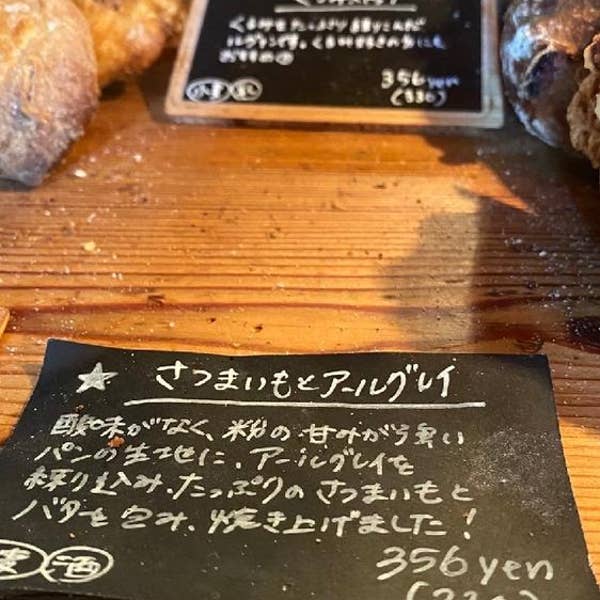 くるみをたっぷり練りこんだ
おすすめ
小麦 乳
356yen
(330)
☆ さつまいもとアールグレイ
酸味がなく、粉の甘みが強い
パンの生地に、アールグレイを
練り込み、たっぷりのさつまいもと
バターを包み、焼き上げました!
麦 酒
356yen